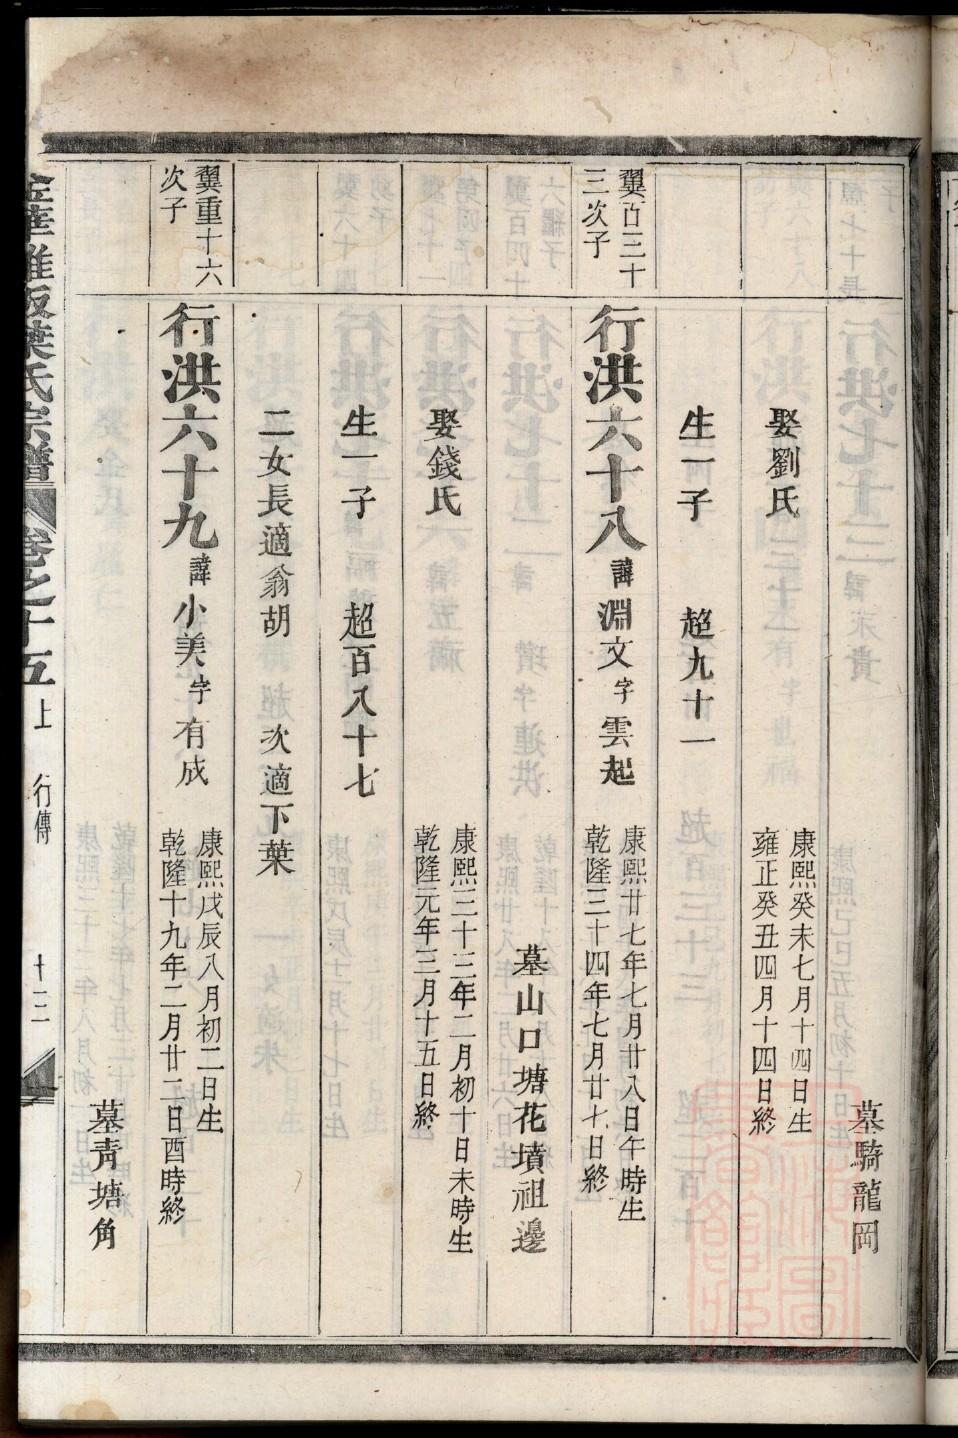 墓騎龍岡
娶劉氏
康熙癸未七月十四日生
雍正癸丑四月十四日終
生一子 超九十一
翼百三十
三次子
行洪六十八 諱淵文字雲起
康熙廿七年七月廿八日午時生
乾隆三十四年七月廿七日終
墓山口塘花墳祖邊
娶錢氏
康熙三十三年二月初十日未時生
乾隆元年三月十五日終
生一子 超百八十七
二女長適翁胡 次適下葉
翼重十六
次子
行洪六十九 諱小美字有成
康熙戊辰八月初二日生
乾隆十九年二月廿二日酉時終
墓靑塘角
葉氏宗譜 卷之十五上 行傳 十三